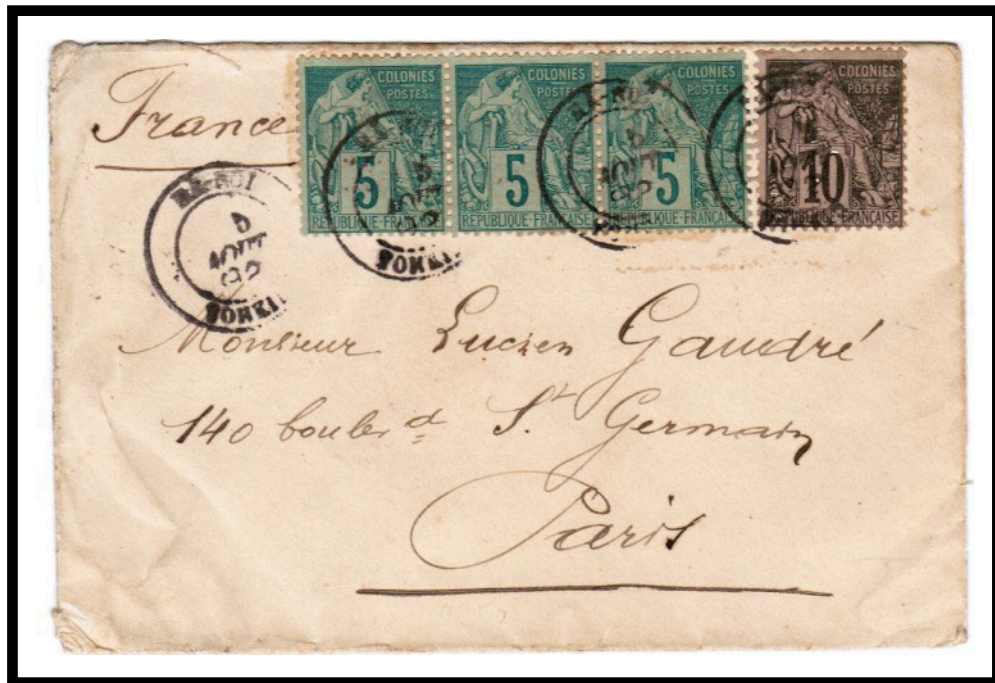 France
COLONIES
POSTES
5
REPUBLIQUE-FRANCAISE
COLONIES
POSTES
5
REPUBLIQUE-FRANCAISE
COLONIES
POSTES
5
REPUBLIQUE-FRANCAISE
COLONIES
POSTES
10
REPUBLIQUE-FRANCAISE
AOUT
92
Monsieur Lucien Gaudré
140 boule d St Germain
Paris